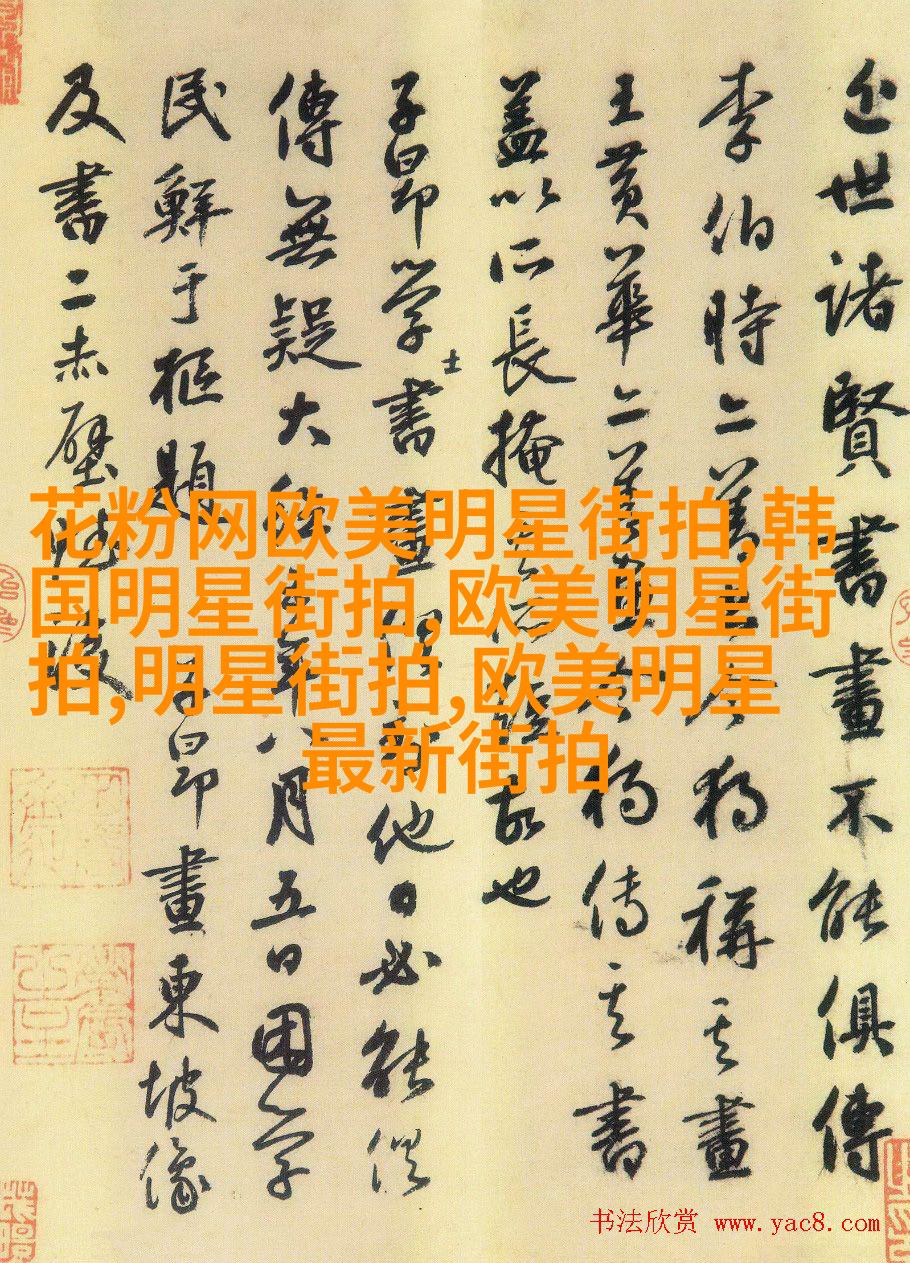 近世諸賢書畫不能俱傳
李伯時二善今獨稱其畫
王黃華二善今獨傳其書
蓋以所長掩故也
子昂學士書畫他日必能俱
傳無疑大年八月五日困學
民鮮于樞題子昂畫東坡像
及書二赤壁
花粉网欧美明星街拍,韩
国明星街拍,欧美明星街
拍,明星街拍,欧美明星
最新街拍
书法欣赏 www.yac8.com